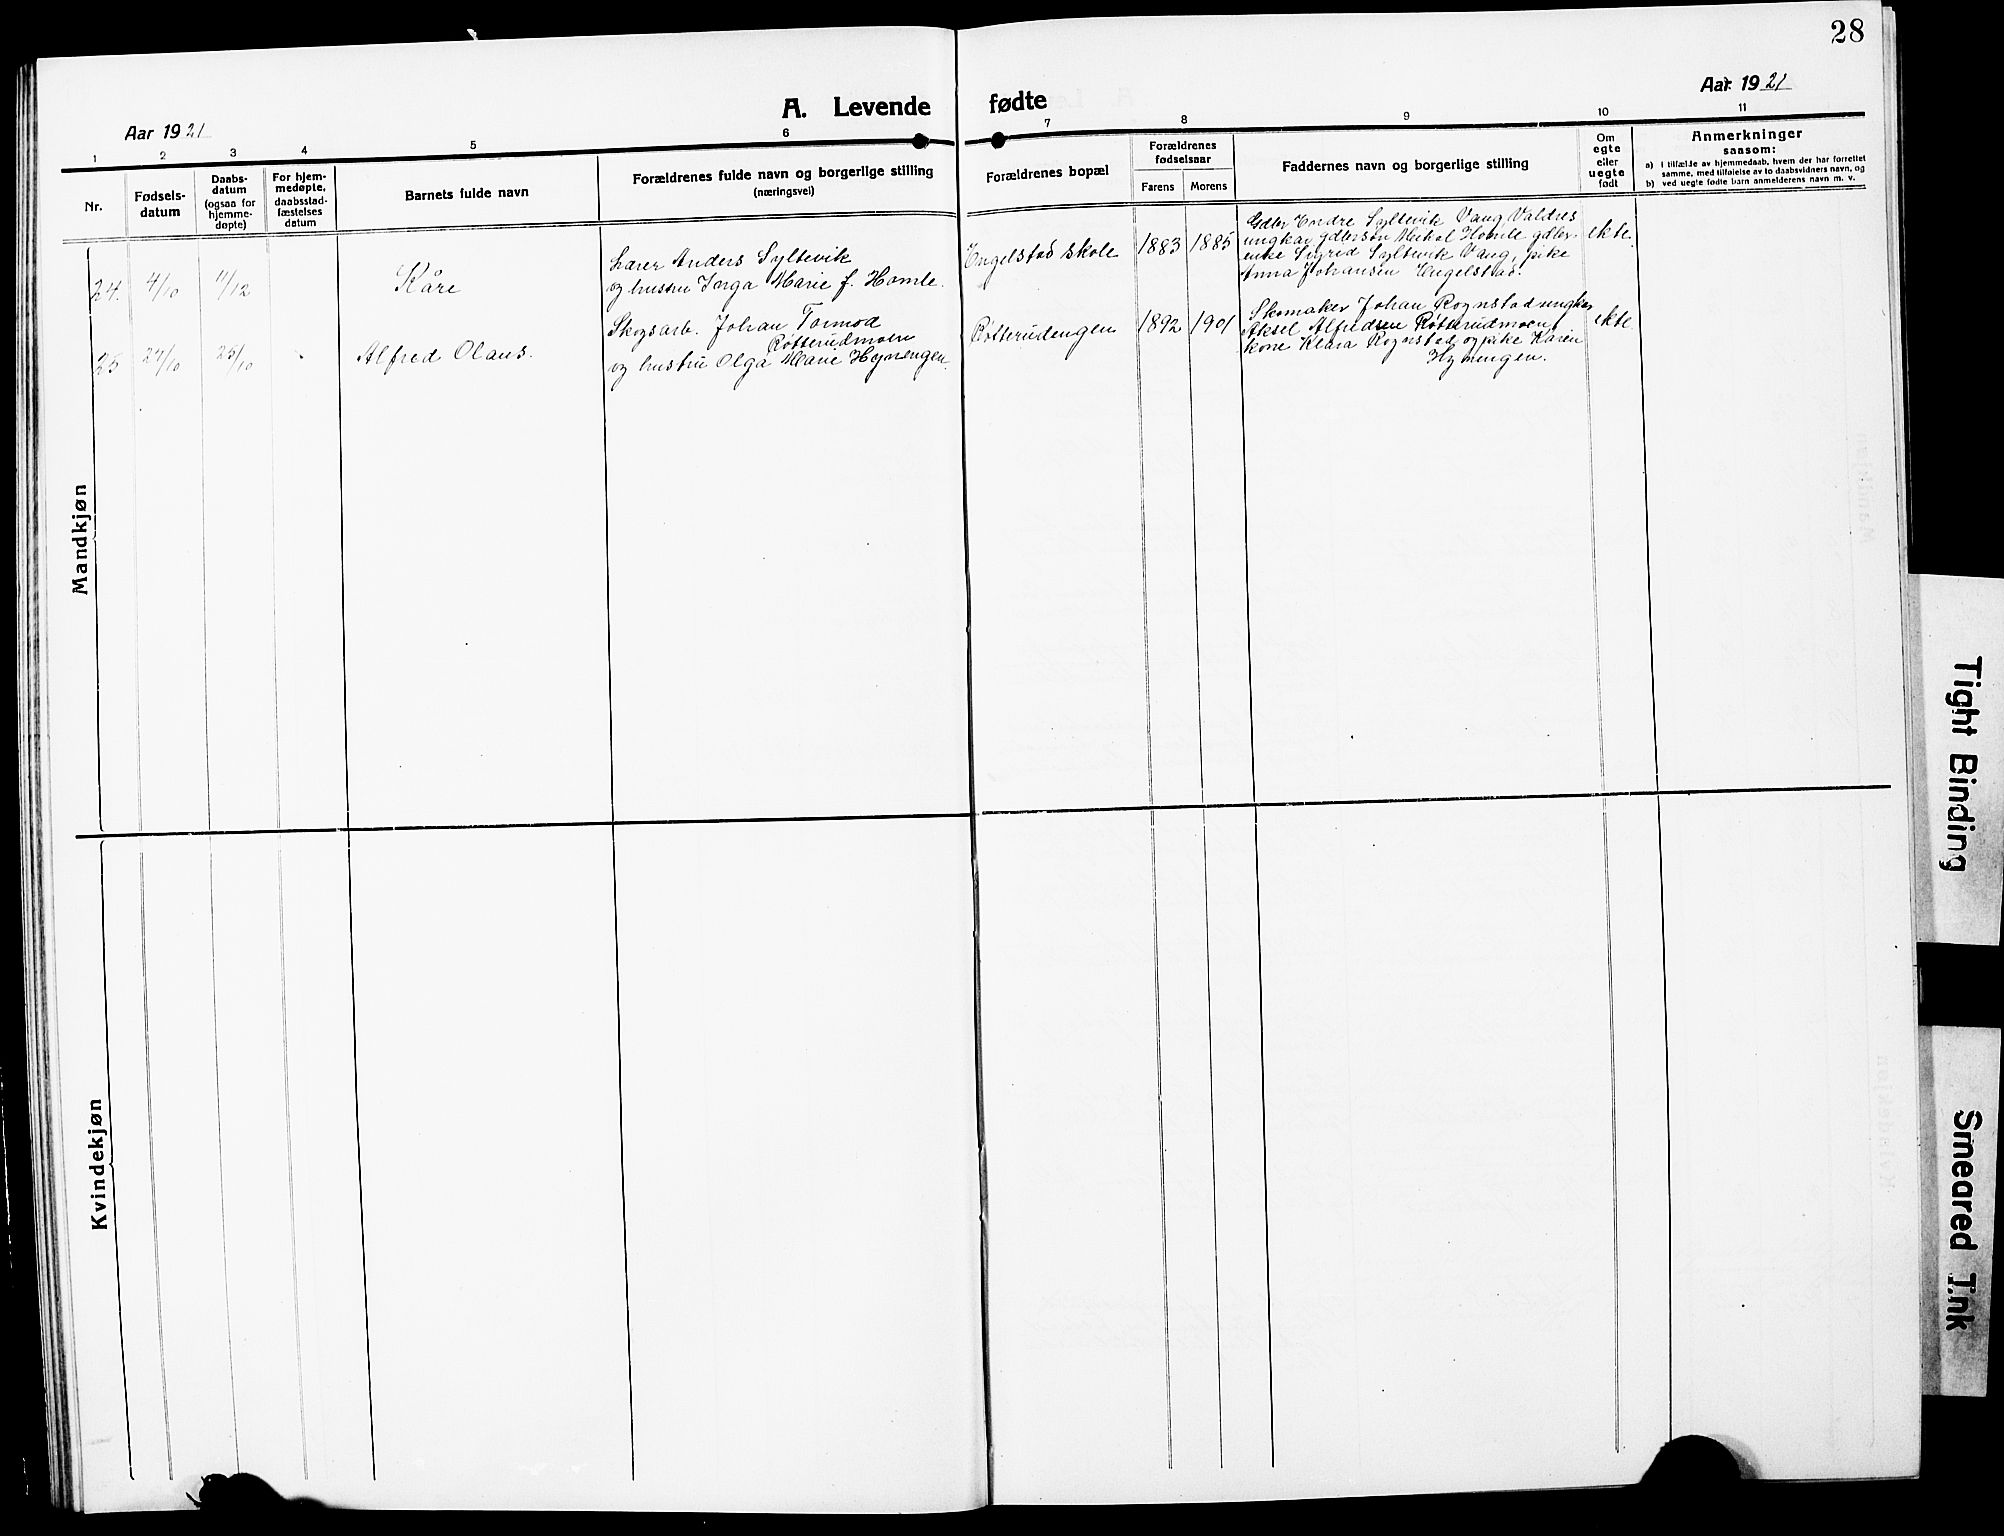 28
A. Levende fødte
Aar 1921
Aar 1921
1 2 3 4 5 6 7 8 9 10 11
Nr.
Fødsels-
datum
Daabs-
datum
(ogsaa for
hjemme-
døpte)
For hjem-
medøpte,
daabsstad-
fæstelses
datum
Barnets fulde navn
Forældrenes fulde navn og borgerlige stilling
(næringsvei)
Forældrenes bopæl
Forældrenes
fødselsaar
Farens Morens
Faddernes navn og borgerlige stilling
Om
egte
eller
uegte
født
Anmerkninger
saasom:
a) I tilfælde av hjemmedaab, hvem der har forrettet
samme, med tilføielse av to daabsvidners navn, og
b) ved uegte fødte barn anmelderens navn m. v.
Mandkjøn
24. 4/10 11/12 Kåre
Lærer Anders Syltevik
og hustru Inga Marie f. Homle.
Engelstad skole 1883 1885
Gdbr Endre Syltevik Vang Valdres
ungkar gdbrsøn Mikal Homle gdbr.
enke Sigrid Syltevik Vang, pike
Anna Johansen Engelstad.
ekte.
25 27/10 25/10 Alfred Olaus.
Skogsarb. Johan Tormod
Røtterudmoen
og hustru Olga Marie Hynengen.
Røtterudengen 1892 1901
Skomaker Johan Rognstad ungkar
Aksel Alfredsen Røtterudmoen,
kone Klara Rognstad og pike Karen
Hynengen.
ekte
Kvindekjøn
Tight Binding
Smeared Ink